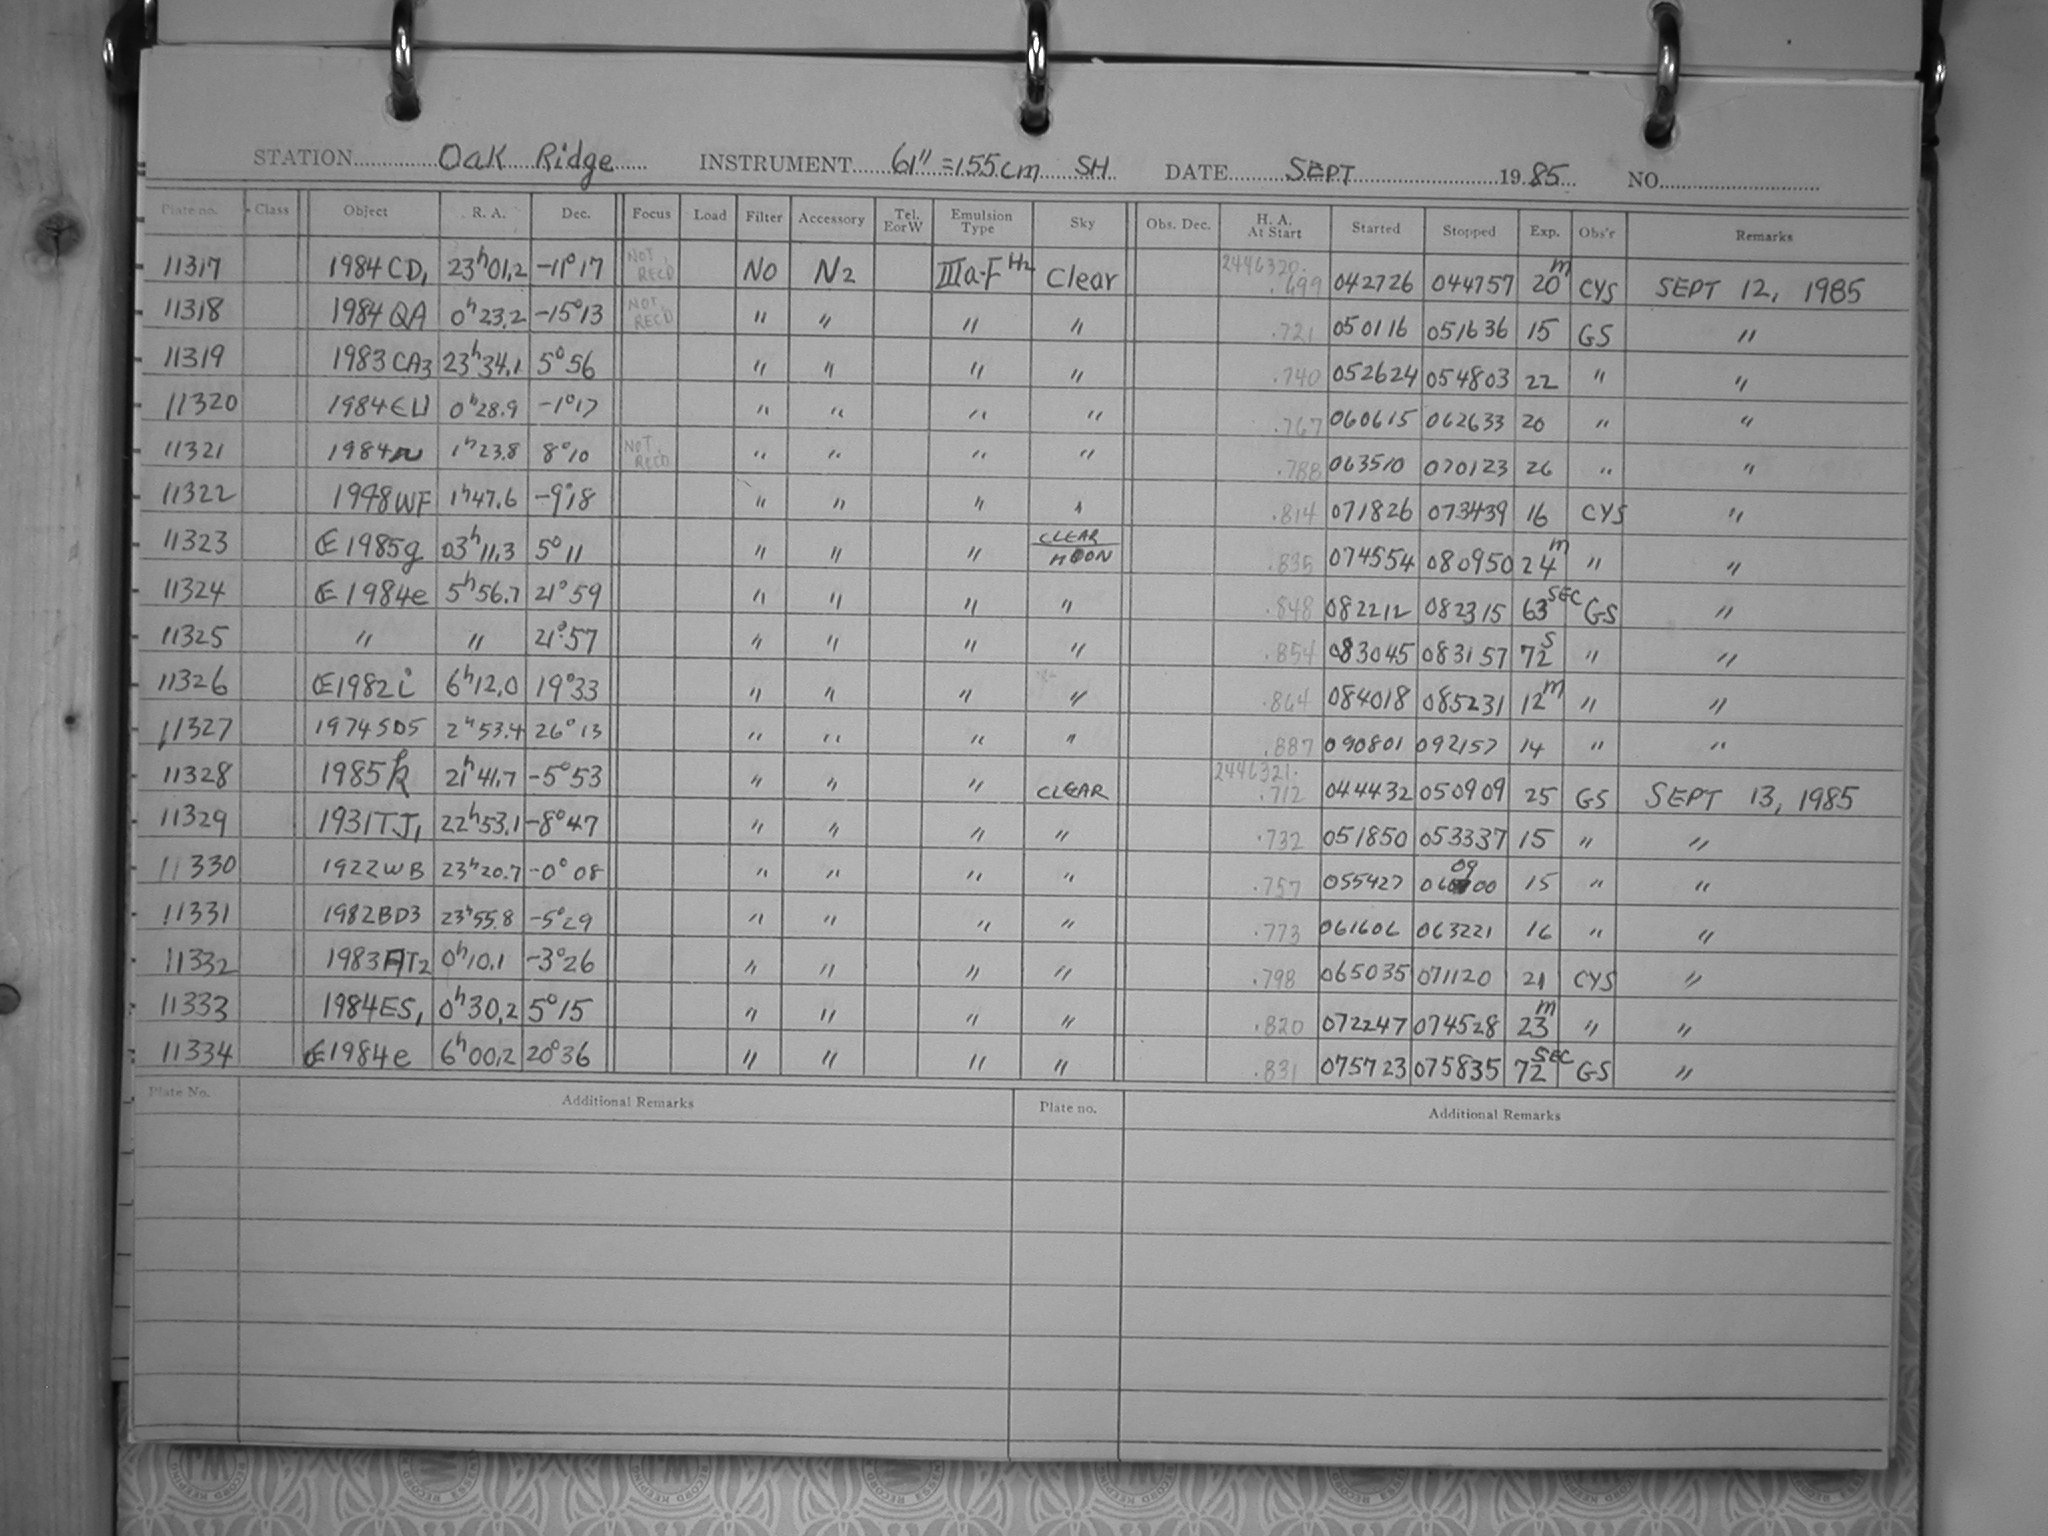 STATION Oak Ridge INSTRUMENT 61" = 155 cm SH DATE SEPT 1985 NO.
Plate no. Class Object R. A. Dec. Focus Load Filter Accessory Tel. E or W Emulsion Type Sky Obs. Dec. H. A. At Start Started Stopped Exp. Obs'r Remarks
11317 1984 CD1 23h01.2 -11°17 NOT REC'D NO N2 IIIa-F H2 Clear 2446320. .699 042726 044757 20m CYS SEPT 12, 1985
11318 1984 QA 0h23.2 -15°13 NOT REC'D " " " " .721 050116 051636 15 GS "
11319 1983 CA3 23h34.1 5°56 " " " " .740 052624 054803 22 " "
11320 1984 EU 0h28.9 -1°17 " " " " .767 060615 062633 20 " "
11321 1984 1h23.8 8°10 NOT REC'D " " " " .788 063510 070123 26 " "
11322 1948 WF 1h47.6 -9°18 " " " " .814 071826 073439 16 CYS "
11323 1985g 03h11.3 5°11 " " " CLEAR MOON .835 074554 080950 24m " "
11324 1984e 5h56.7 21°59 " " " " .848 082212 082315 63SEC GS "
11325 " " 21°57 " " " " .854 083045 083157 72S " "
11326 1982i 6h12.0 19°33 " " " " .864 084018 085231 12m " "
11327 1974 SD5 2h53.4 26°13 " " " " .887 090801 092157 14 " "
11328 1985k 21h41.7 -5°53 " " " CLEAR 2446321. .712 044432 050909 25 GS SEPT 13, 1985
11329 1931 TJ1 22h53.1 -8°47 " " " " .732 051850 053337 15 " "
11330 1922 WB 23h20.7 -0°08 " " " " .757 055427 060900 15 " "
11331 1982 BD3 23h55.8 -5°29 " " " " .773 061606 063221 16 " "
11332 1983 AT2 0h10.1 -3°26 " " " " .798 065035 071120 21 CYS "
11333 1984 ES1 0h30.2 5°15 " " " " .820 072247 074528 23m " "
11334 1984e 6h00.2 20°36 " " " " .831 075723 075835 72SEC GS "
Plate No. Additional Remarks Plate no. Additional Remarks